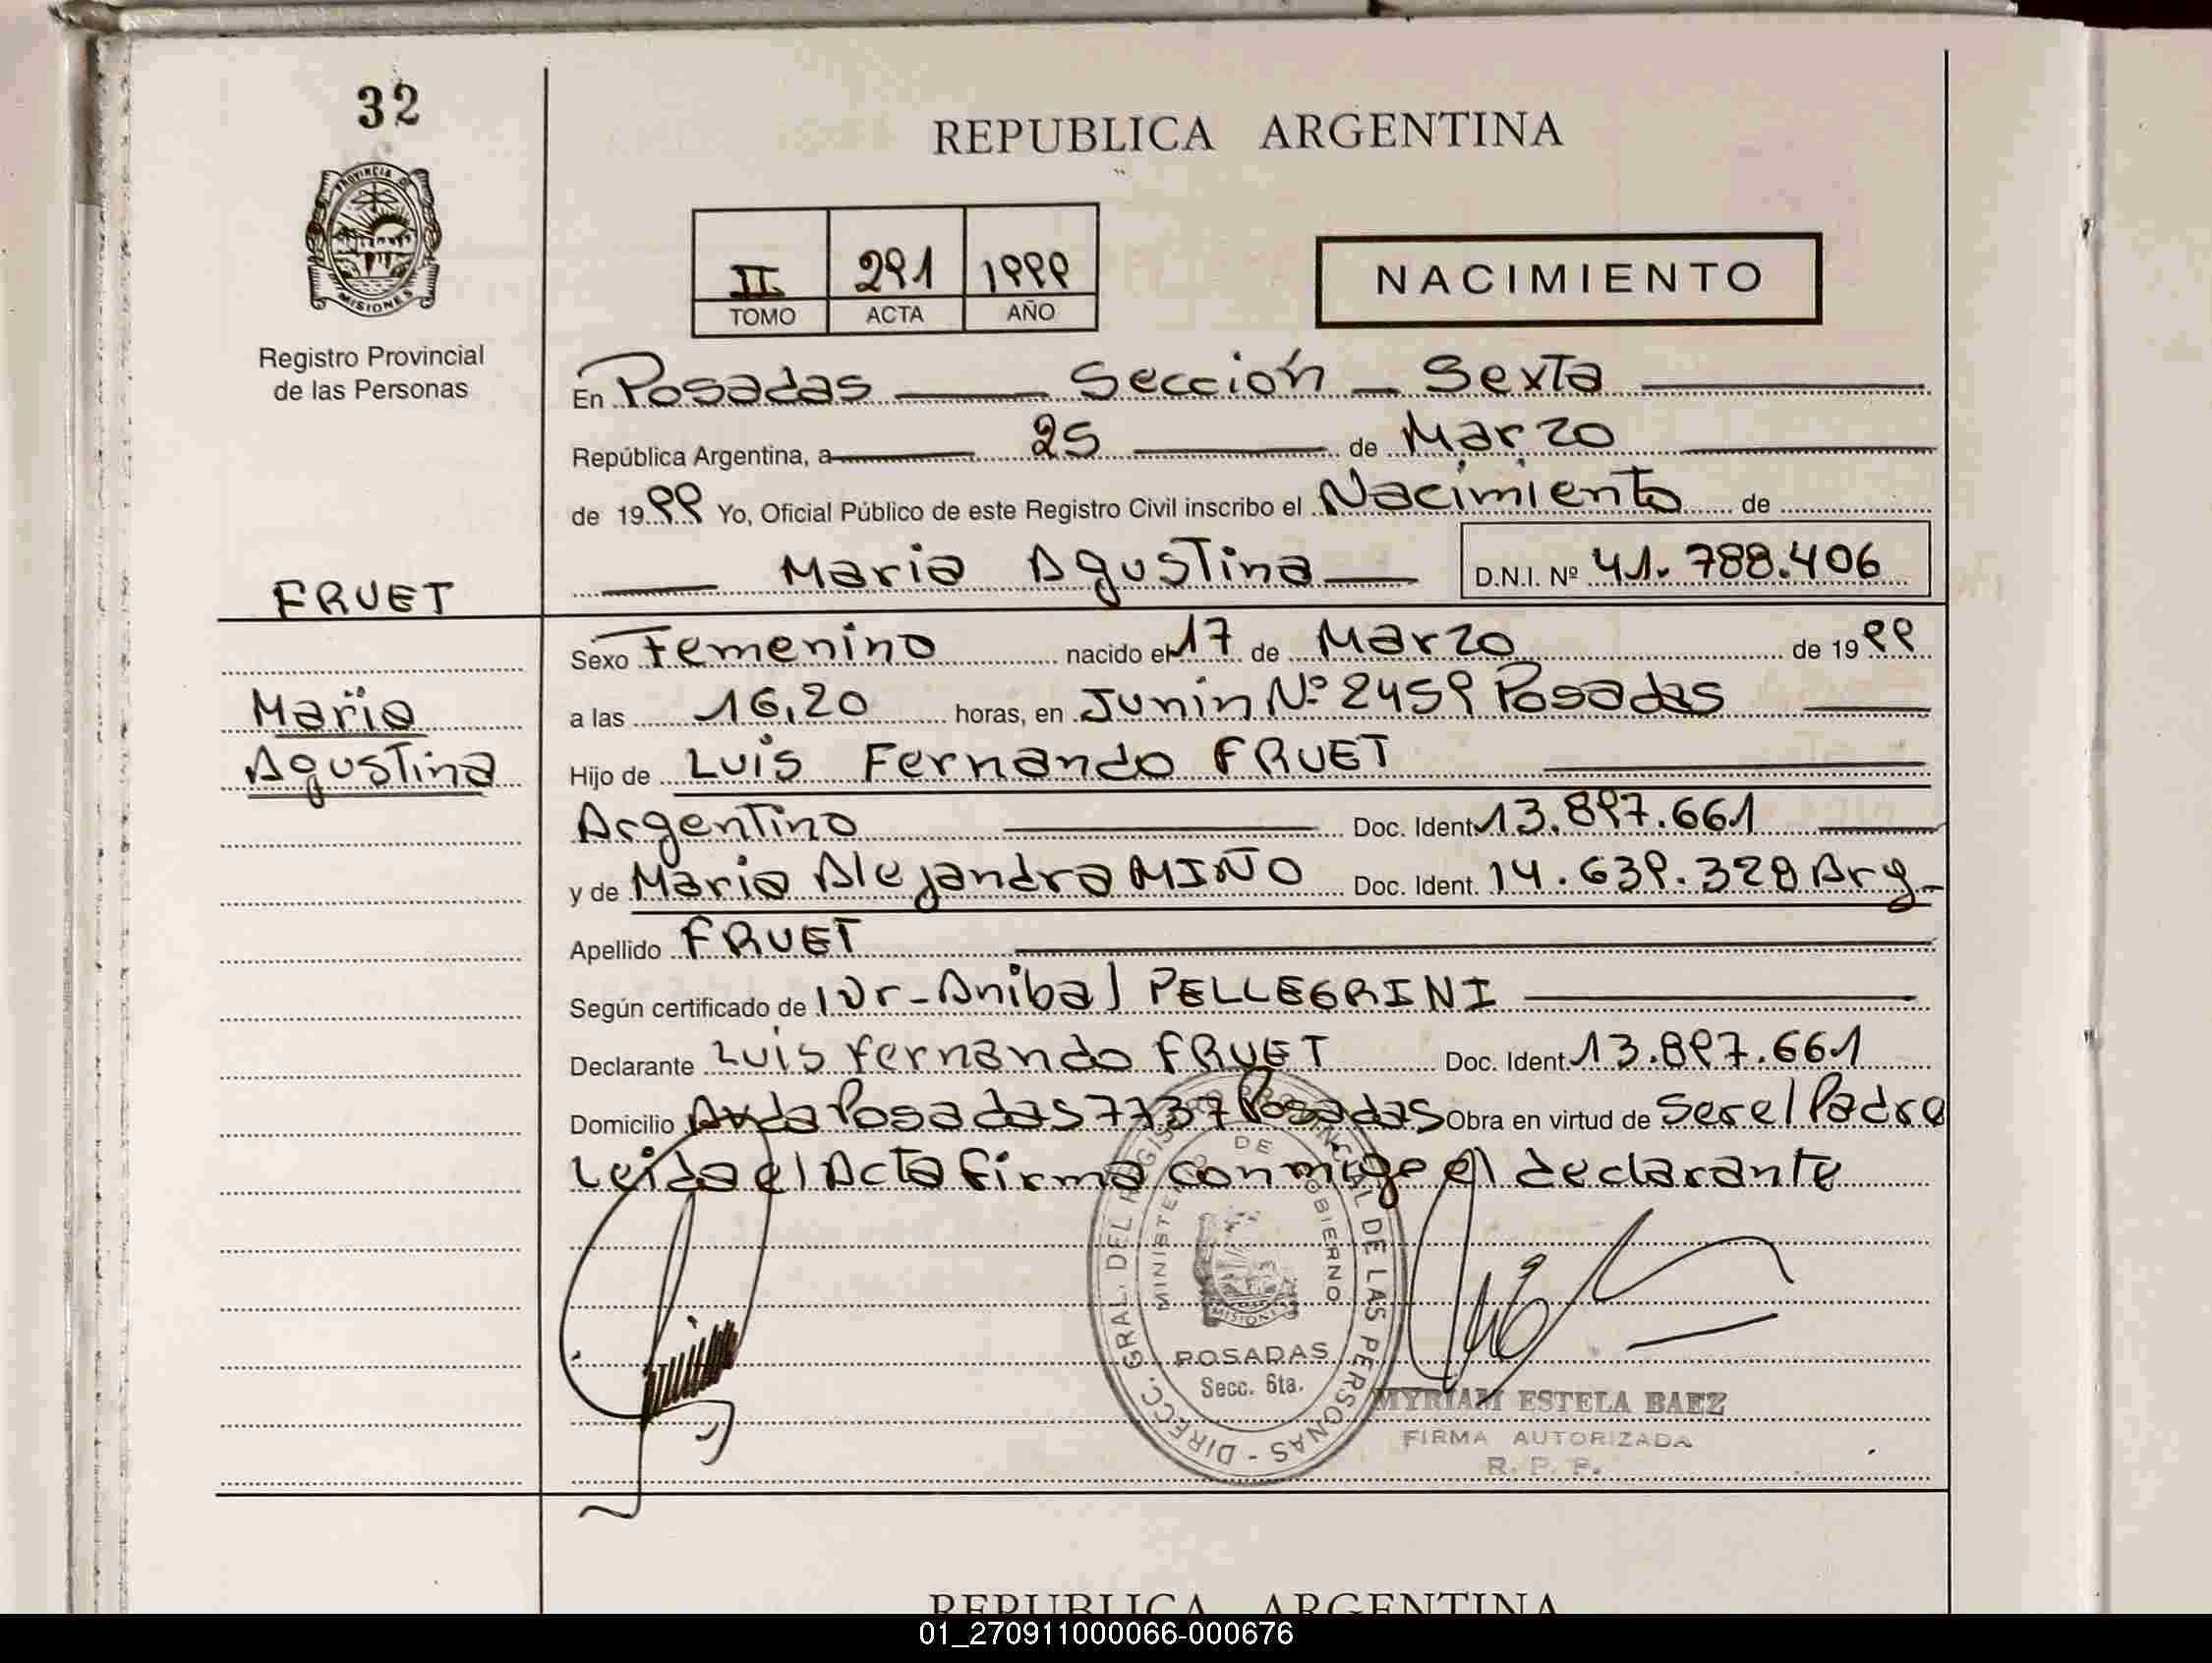 32
PROVINCIA DE
MISIONES
Registro Provincial
de las Personas
REPUBLICA ARGENTINA
II 291 1999
TOMO ACTA AÑO
NACIMIENTO
En Posadas Sección Sexta
República Argentina, a 25 de Marzo
de 1999 Yo, Oficial Público de este Registro Civil inscribo el Nacimiento de
Maria Agustina D.N.I. Nº 41.788.406
FRUET
Maria
Agustina
Sexo Femenino nacido el 17 de Marzo de 1999
a las 16,20 horas, en Junin Nº 2459 Posadas
Hijo de Luis Fernando FRUET
Argentino Doc. Ident. 13.897.661
y de Maria Alejandra MIÑO Doc. Ident. 14.639.328 Arg.
Apellido FRUET
Según certificado de Dr. Anibal PELLEGRINI
Declarante Luis Fernando FRUET Doc. Ident. 13.897.661
Domicilio Avda Posadas 7737 Posadas Obra en virtud de Ser el Padre
Leida el Acta firma conmigo el declarante
DIRECC. GRAL. DEL REGISTRO PROVINCIAL DE LAS PERSONAS
MINISTERIO DE GOBIERNO
MISIONES
POSADAS
Secc. 6ta.
MYRIAM ESTELA BAEZ
FIRMA AUTORIZADA
R. P. P.
REPUBLICA ARGENTINA
01_270911000066-000676